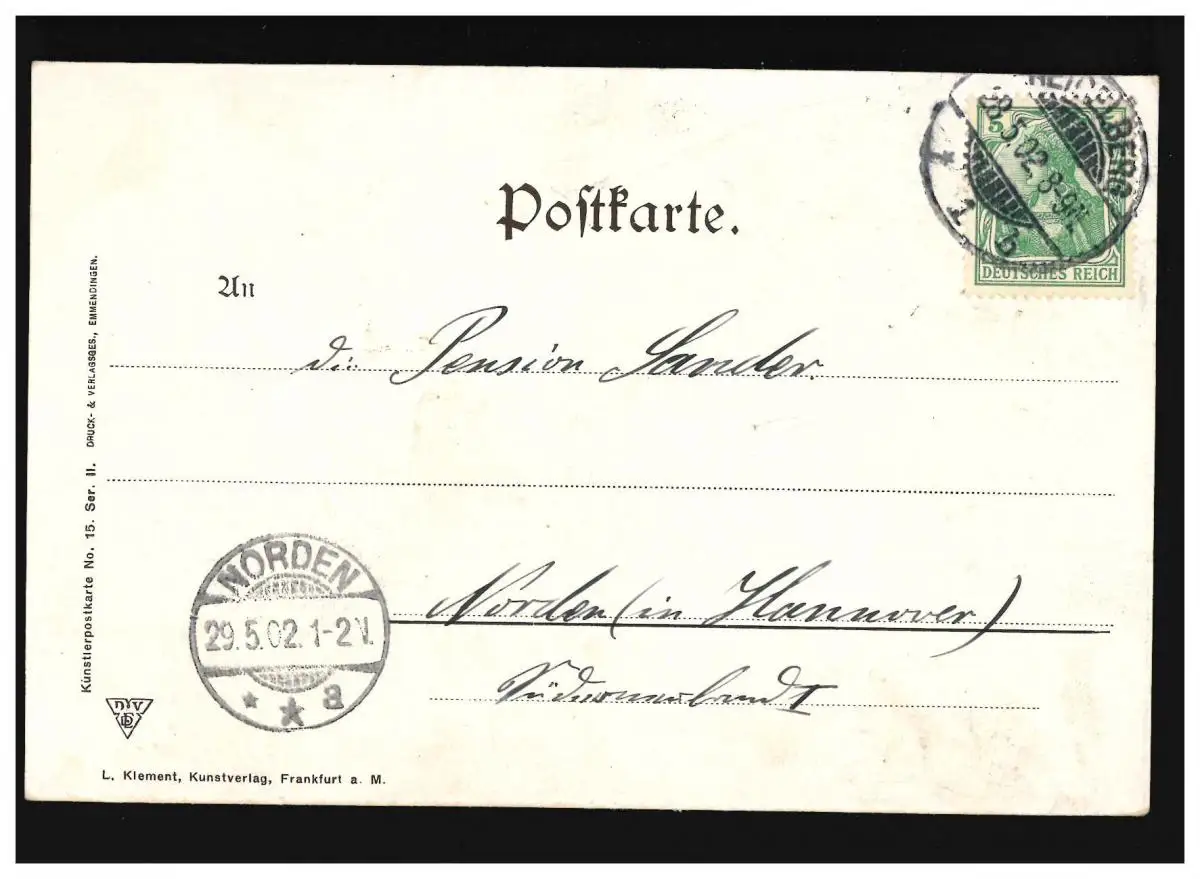 Postkarte.
HEIDELBERG
28.5.02. 8-9N.
* 1. b
5
DEUTSCHES REICH
An
die Pension Sander.
NORDEN
29.5.02. 1-2V.
* * a
Norden (in Hannover)
L. Klement, Kunstverlag, Frankfurt a. M.
Künstlerpostkarte No. 15. Ser. II. DRUCK- & VERLAGSGES., EMMENDINGEN.